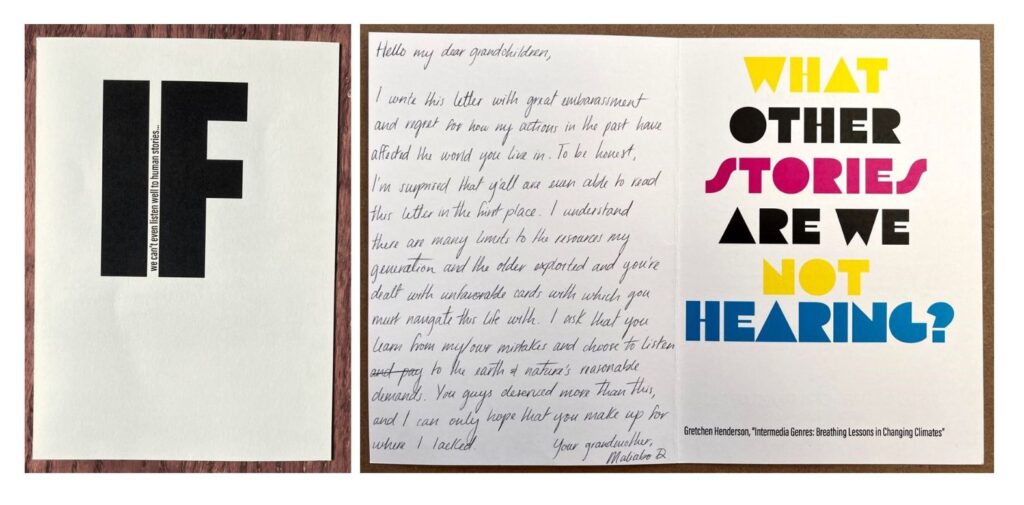 IF
we can't even listen well to human stories...
Hello my dear grandchildren,
I write this letter with great embarassment
and regret for how my actions in the past have
affected the world you live in. To be honest,
I'm surprised that y'all are even able to read
this letter in the first place. I understand
there are many limits to the resources my
generation and the older exploited and you're
dealt with unfavorable cards with which you
must navigate this life with. I ask that you
learn from my/our mistakes and choose to listen
and pay to the earth & nature's reasonable
demands. You guys deserved more than this,
and I can only hope that you make up for
where I lacked.
Your grandmother,
WHAT
OTHER
STORIES
ARE WE
NOT
HEARING?
Gretchen Henderson, "Intermedia Genres: Breathing Lessons in Changing Climates"